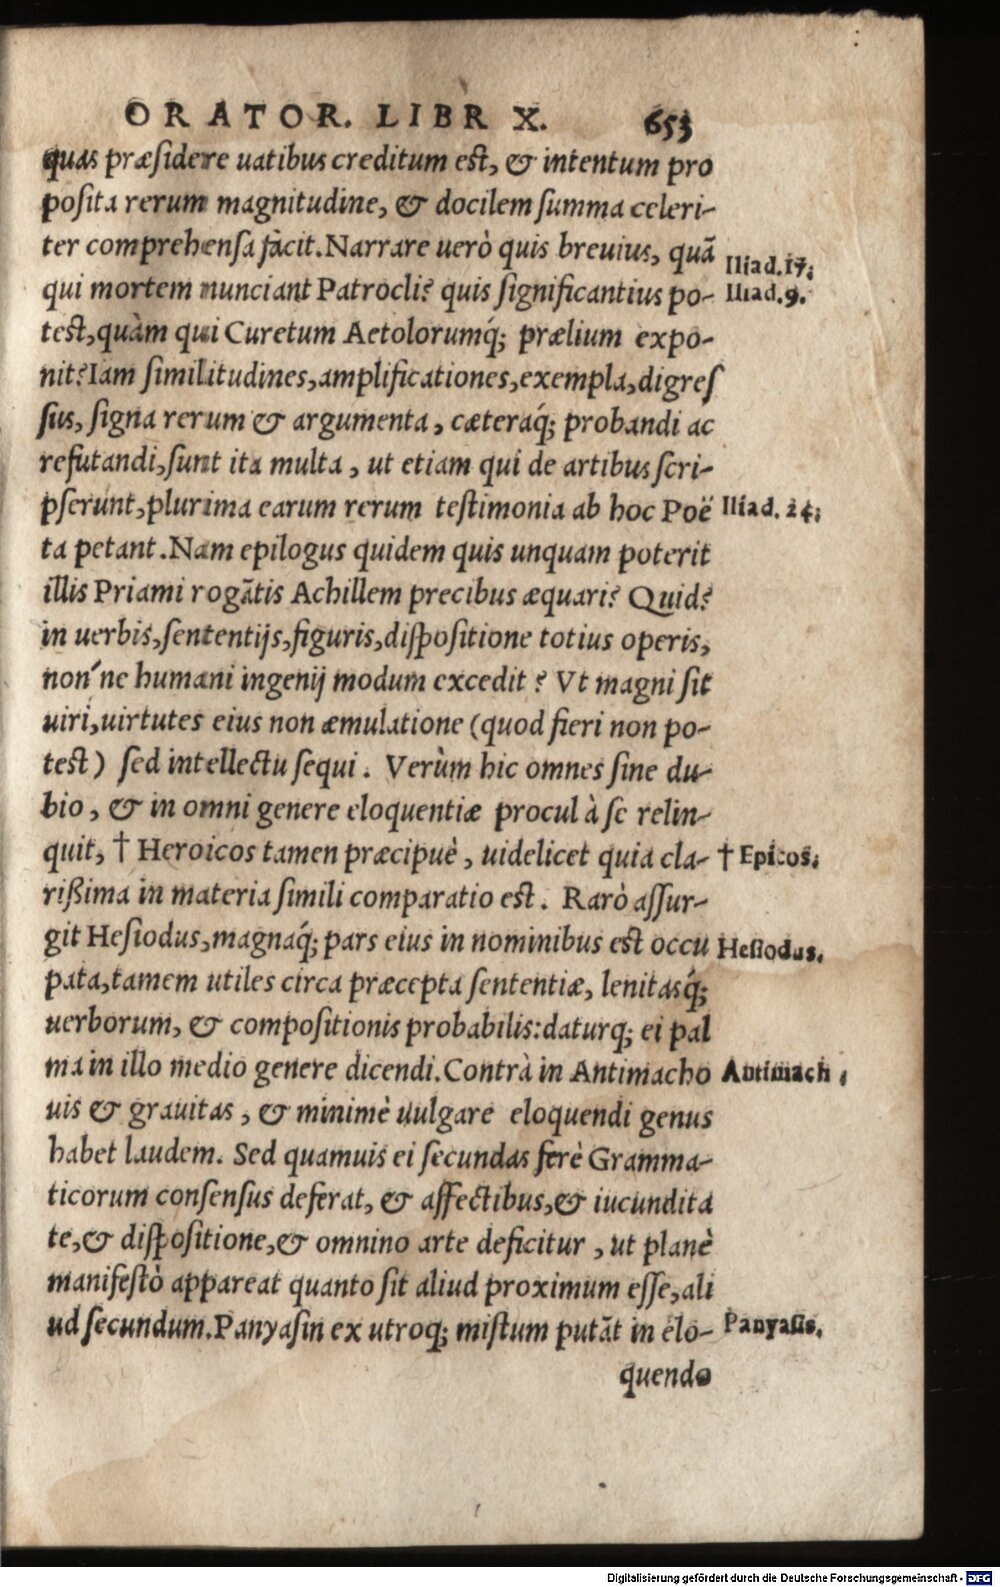 ORATOR. LIBR X. 653
quas præsidere uatibus creditum est, & intentum pro
posita rerum magnitudine, & docilem summa celeri-
ter comprehensa facit. Narrare uerò quis breuius, quã
Iliad.17.
qui mortem nunciant Patrocli? quis significantius po-
Iliad.9.
test, quàm qui Curetum Aetolorumq́; prælium expo-
nit? Iam similitudines, amplificationes, exempla, digres
sus, signa rerum & argumenta, cæteraq́; probandi ac
refutandi, sunt ita multa, ut etiam qui de artibus scri-
pserunt, plurima earum rerum testimonia ab hoc Poë
Iliad. 24.
ta petant. Nam epilogus quidem quis unquam poterit
illis Priami rogãtis Achillem precibus æquari? Quid?
in uerbis, sententijs, figuris, dispositione totius operis,
non´ne humani ingenij modum excedit? Vt magni sit
uiri, uirtutes eius non æmulatione (quod fieri non po-
test) sed intellectu sequi. Verùm hic omnes sine du-
bio, & in omni genere eloquentiæ procul à se relin-
quit, † Heroicos tamen præcipuè, uidelicet quia cla-
† Epicos.
rißima in materia simili comparatio est. Rarò assur-
git Hesiodus, magnaq́; pars eius in nominibus est occu
Hesiodus.
pata, tamem utiles circa præcepta sententiæ, lenitasq́;
uerborum, & compositionis probabilis: daturq; ei pal
ma in illo medio genere dicendi. Contrà in Antimacho
Antimach.
uis & grauitas, & minimè uulgare eloquendi genus
habet laudem. Sed quamuis ei secundas ferè Gramma-
ticorum consensus deferat, & affectibus, & iucundita
te, & dispositione, & omnino arte deficitur, ut planè
manifestò appareat quanto sit aliud proximum esse, ali
ud secundum. Panyasin ex utroq; mistum putãt in elo-
Panyasis.
quendo
Digitalisierung gefördert durch die Deutsche Forschungsgemeinschaft - DFG